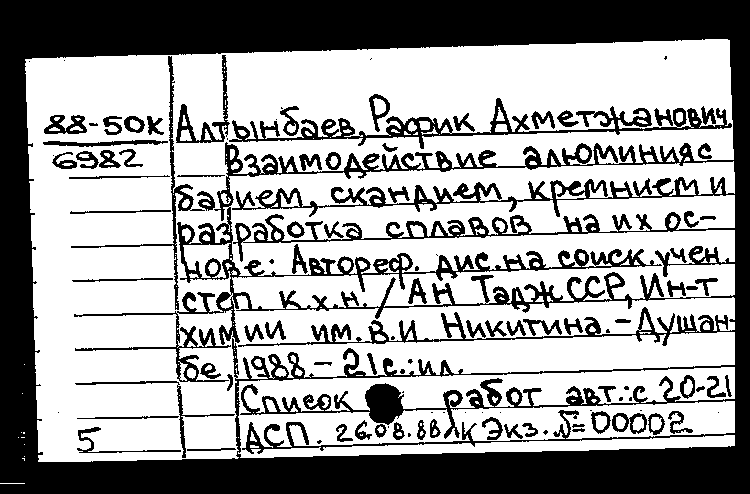 88-50К Алтынбаев, Рафик Ахметжанович.
6982 Взаимодействие алюминия с
барием, скандием, кремнием и
разработка сплавов на их ос-
нове: Автореф. дис. на соиск. учен.
степ. к.х.н. / АН ТаджССР, Ин-т
химии им. В.И. Никитина. - Душан-
бе, 1988. - 21 с.: ил.
Список работ авт.: с. 20-21
5 АСП. 26.08.88 Экз. № 00002